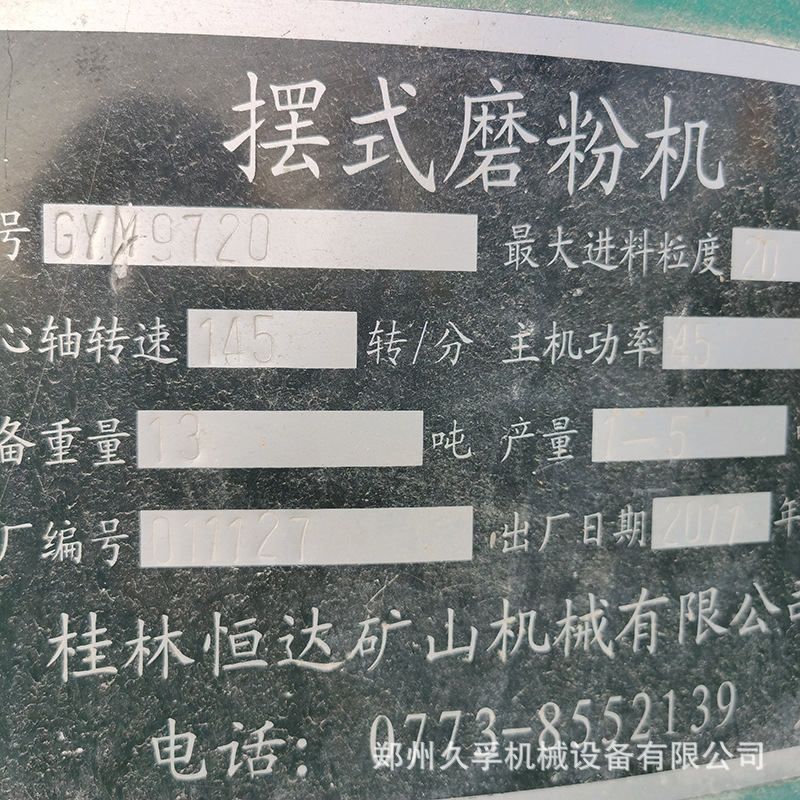 摆式磨粉机
号 GYM9720 最大进料粒度 20
心轴转速 145 转/分 主机功率 45
备重量 13 吨 产量 1-5
厂编号 011127 出厂日期 2011 年
桂林恒达矿山机械有限公司
电话: 0773-8552139
郑州久孚机械设备有限公司